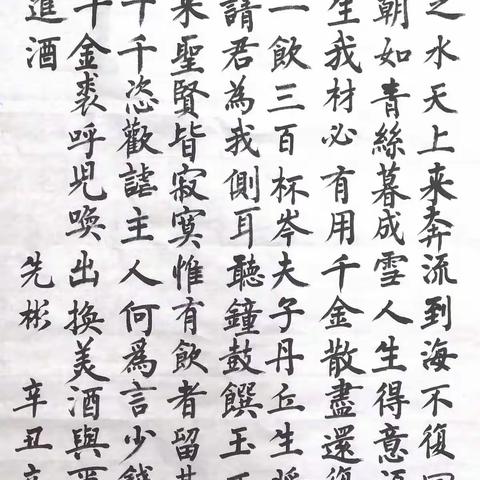 之水天上來奔流到海不復回
朝如青絲暮成雪人生得意須
生我材必有用千金散盡還復
一飲三百杯岑夫子丹丘生將
請君為我側耳聽鐘鼓饌玉不
來聖賢皆寂寞惟有飲者留其
十千恣歡謔主人何爲言少錢
千金裘呼兒喚出換美酒與爾
進酒 先彬 辛丑